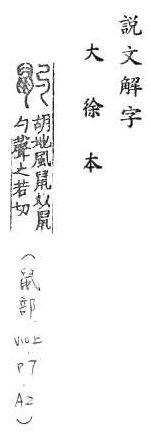 說文解字
大徐本
胡地風鼠从鼠
勺聲之若切
（鼠部．V10上．P7．A2）